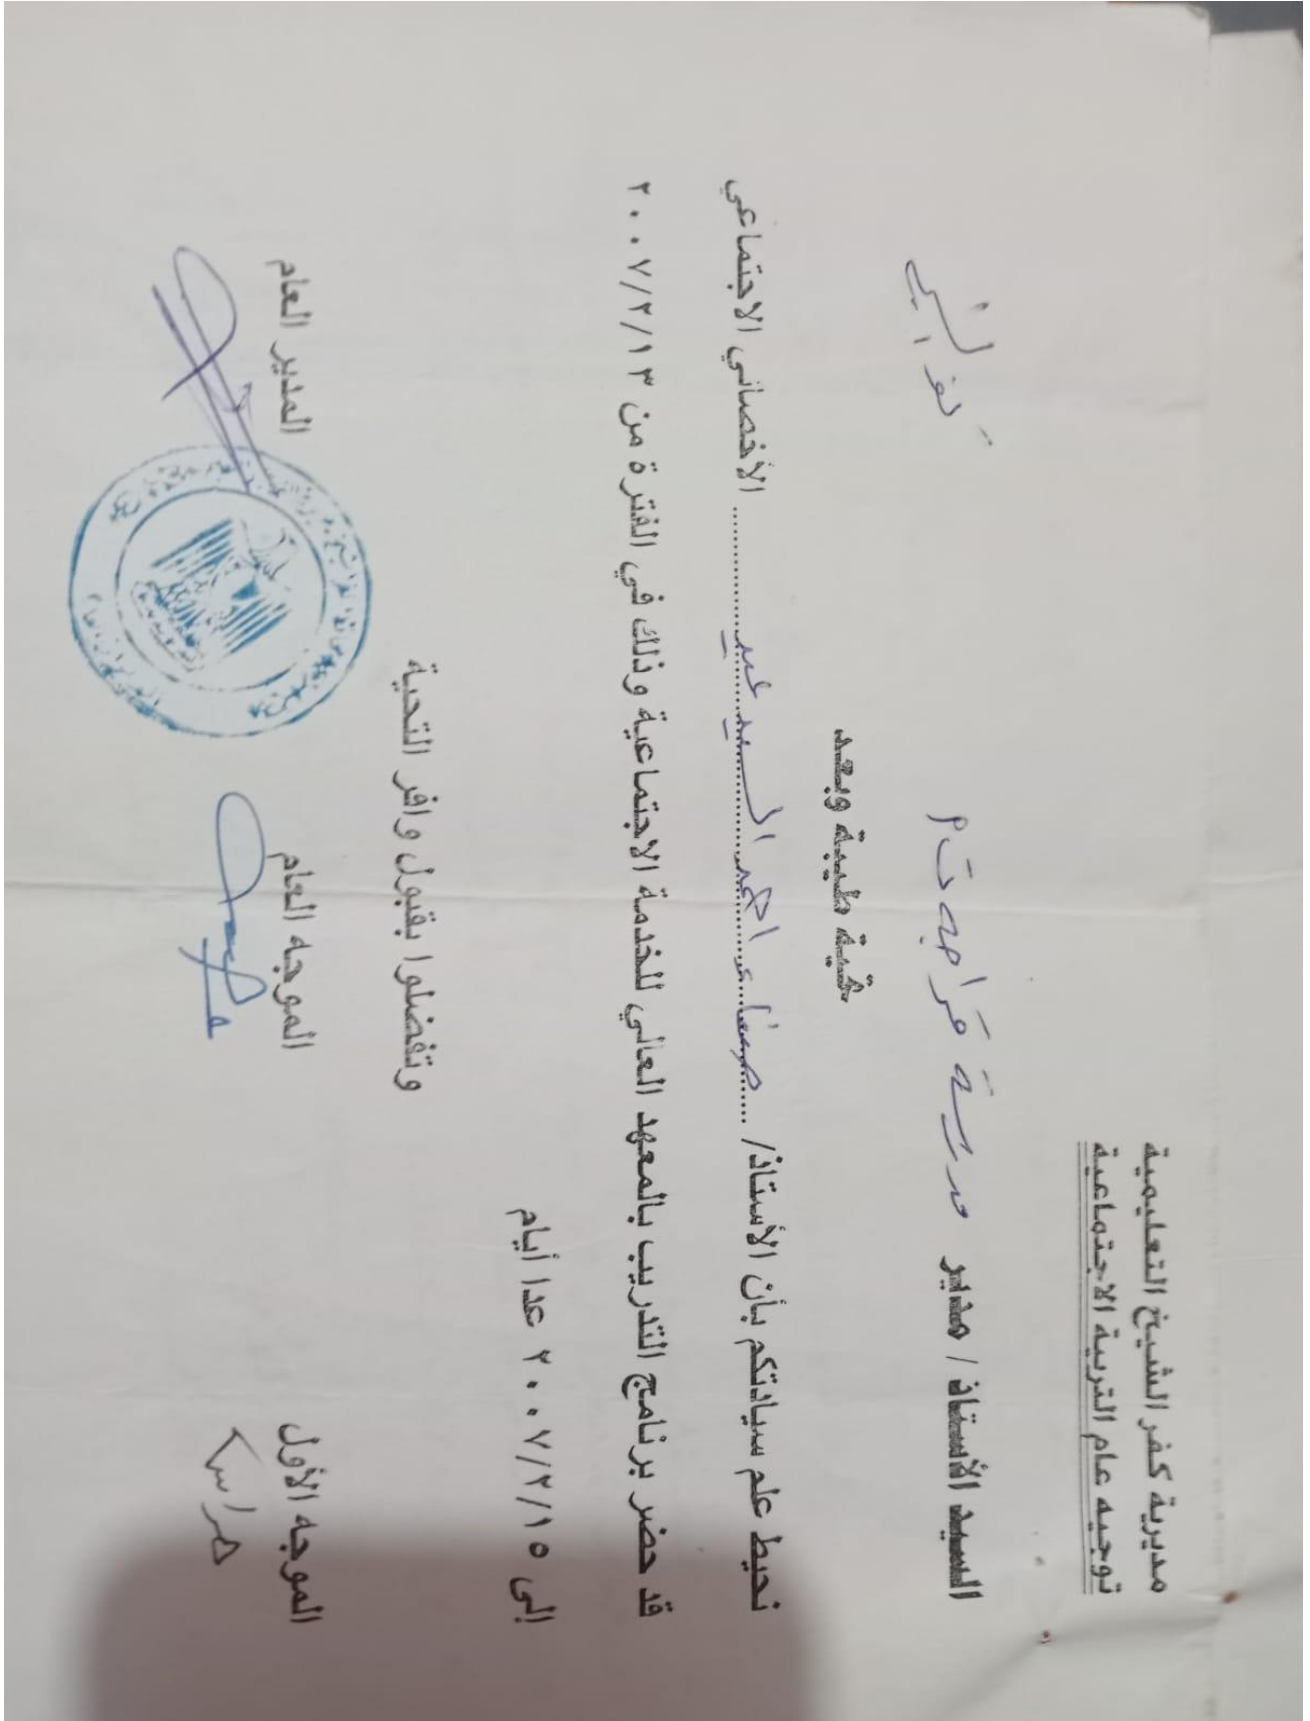 مديرية كفر الشيخ التعليمية
توجيه عام التربية الاجتماعية
السيد الأستاذ / مدير مدرسة
تحية طيبة وبعد
نحيط علم سيادتكم بأن الأستاذ/ صفاء احمد السيد عيد الأخصائي الاجتماعي
قد حضر برنامج التدريب بالمعهد العالي للخدمة الاجتماعية وذلك في الفترة من ٢٠٠٧/٢/١٣
إلى ٢٠٠٧/٢/١٥ عدا أيام
وتفضلوا بقبول وافر التحية
الموجه الأول الموجه العام المدير العام